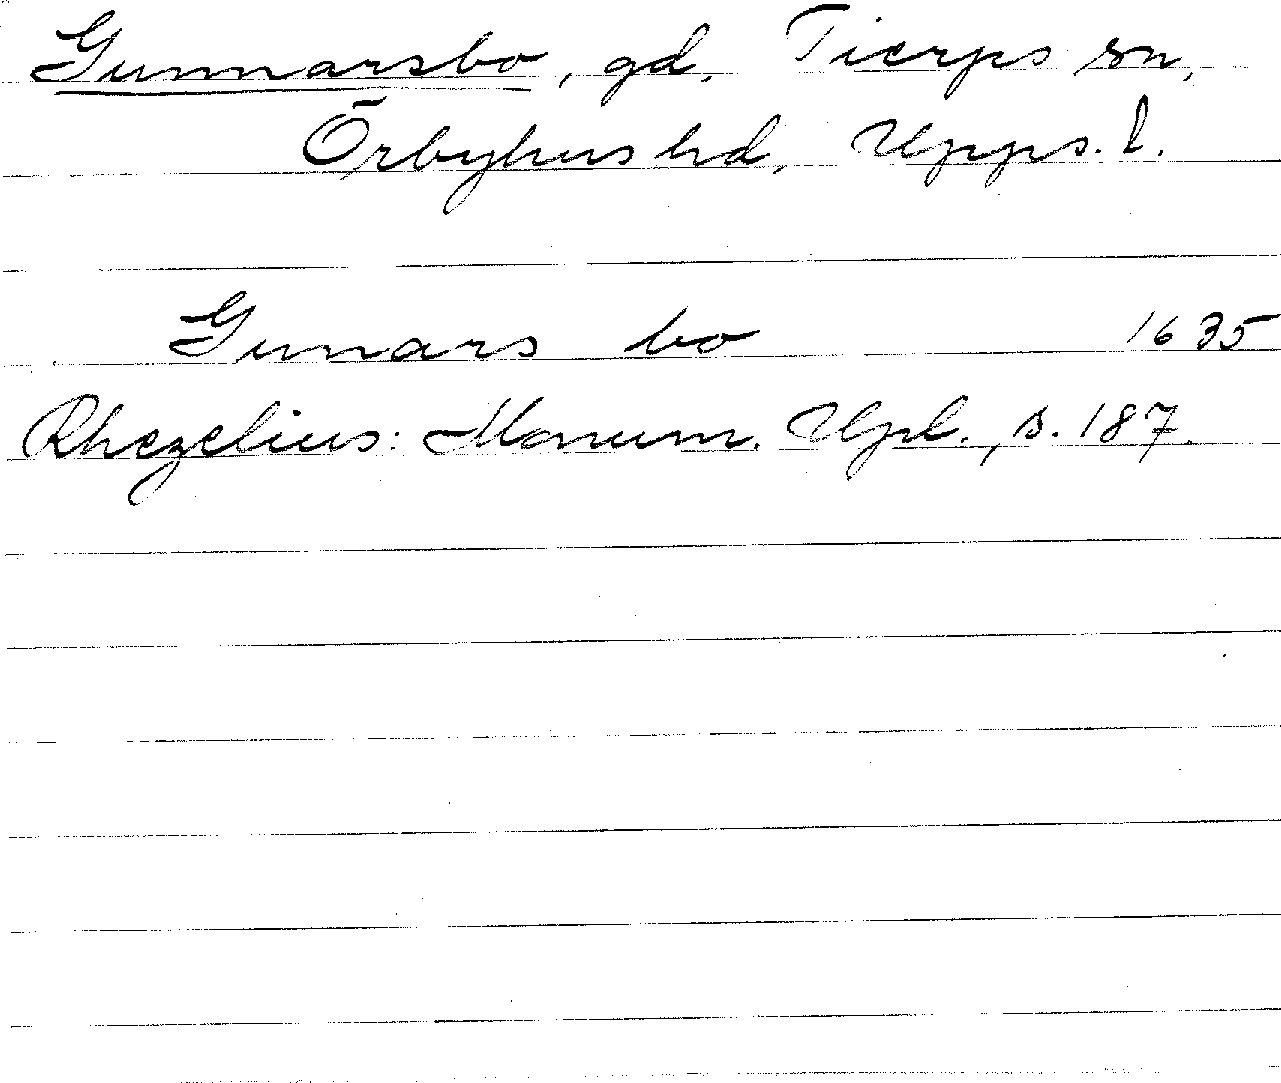 Gunnarsbo, gd, Tierps sn,
Örbyhus hd, Upps. l.
Gunars bo 1635
Rhezelius: Monum. Upl., s. 187.